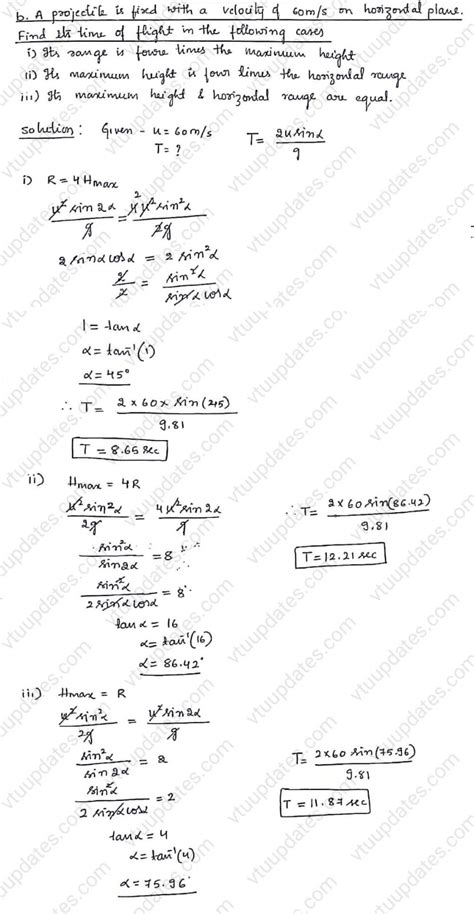 b. A projectile is fired with a velocity of 60m/s on horizontal plane.
Find its time of flight in the following cases
i) Its range is four times the maximum height
ii) Its maximum height is four times the horizontal range
iii) Its maximum height & horizontal range are equal.
Solution: Given - u = 60m/s T = 2u sinα / g
T = ?
i) R = 4Hmax
u² sin2α / g = 4u² sin²α / 2g
2 sinα cosα = 2 sin²α
2/2 = sin²α / sinα cosα
1 = tanα
α = tan⁻¹(1)
α = 45°
∴ T = 2 × 60 × sin(45) / 9.81
T = 8.65 sec
ii) Hmax = 4R
u² sin²α / 2g = 4u² sin2α / g
sin²α / sin2α = 8
sin²α / 2 sinα cosα = 8
tanα = 16
α = tan⁻¹(16)
α = 86.42°
∴ T = 2×60 sin(86.42) / 9.81
T = 12.21 sec
iii) Hmax = R
u² sin²α / 2g = u² sin2α / g
sin²α / sin2α = 2
sin²α / 2 sinα cosα = 2
tanα = 4
α = tan⁻¹(4)
α = 75.96°
T = 2×60 sin(75.96) / 9.81
T = 11.87 sec
vtuupdates.com